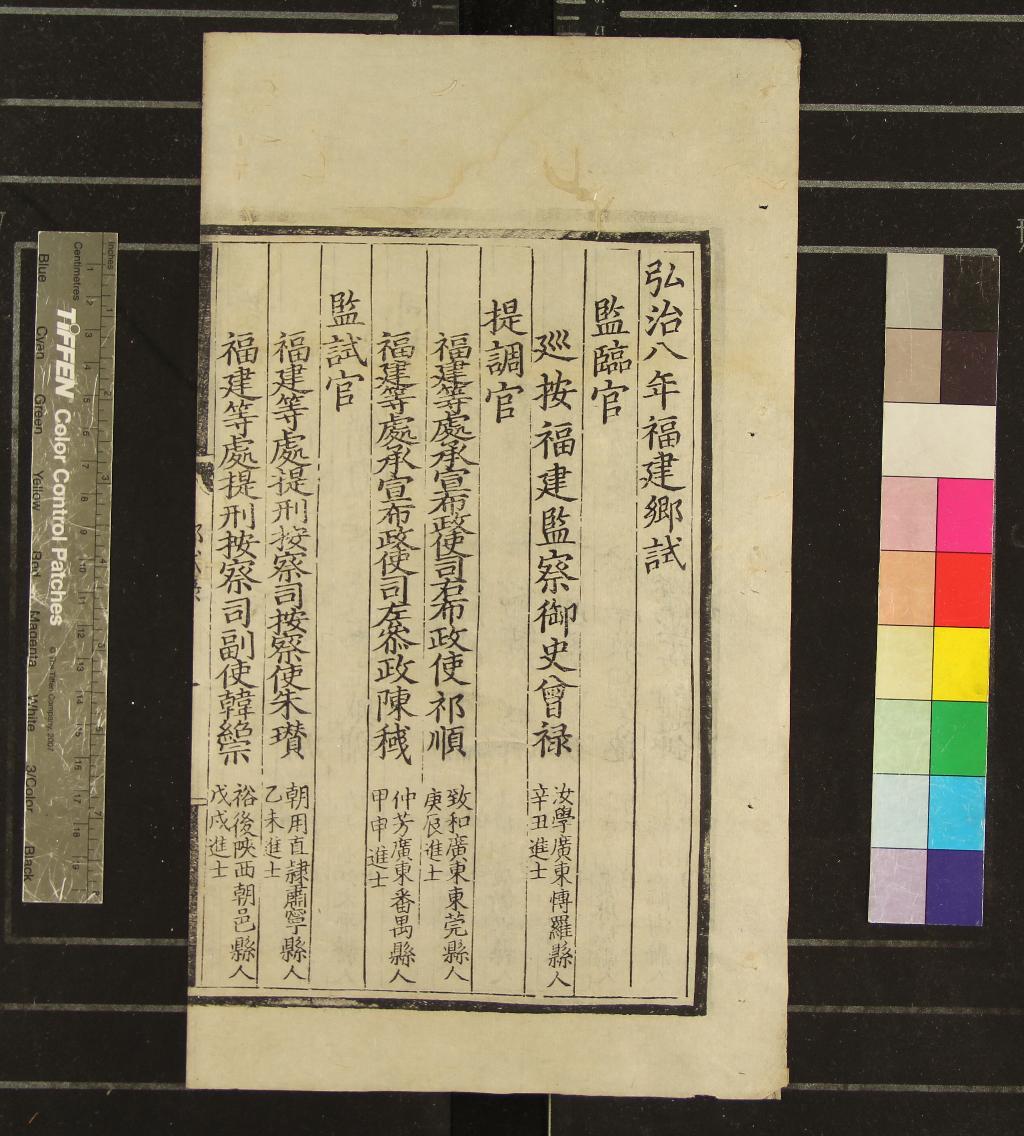 弘治八年福建鄉試
監臨官
廵按福建監察御史曾祿
汝學廣東愽羅縣人
辛丑進士
提調官
福建等處承宣布政使司右布政使祁順
致和廣東東莞縣人
庚辰進士
福建等處承宣布政使司左叅政陳稶
仲芳廣東番禺縣人
甲申進士
監試官
福建等處提刑按察司按察使朱瓚
朝用直隷肅寧縣人
乙未進士
福建等處提刑按察司副使韓紹宗
裕後陜西朝邑縣人
戊戌進士
Inches
Centimetres
TIFFEN Color Control Patches
© The Tiffen Company, 2007
Blue Cyan Green Yellow Red Magenta White 3/Color Black